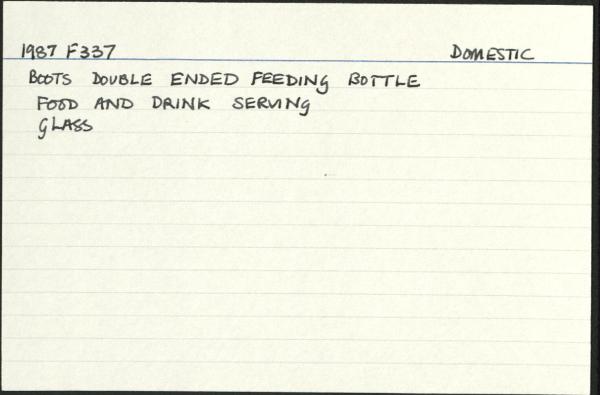 1987 F337 DOMESTIC
BOOTS DOUBLE ENDED FEEDING BOTTLE
FOOD AND DRINK SERVING
GLASS